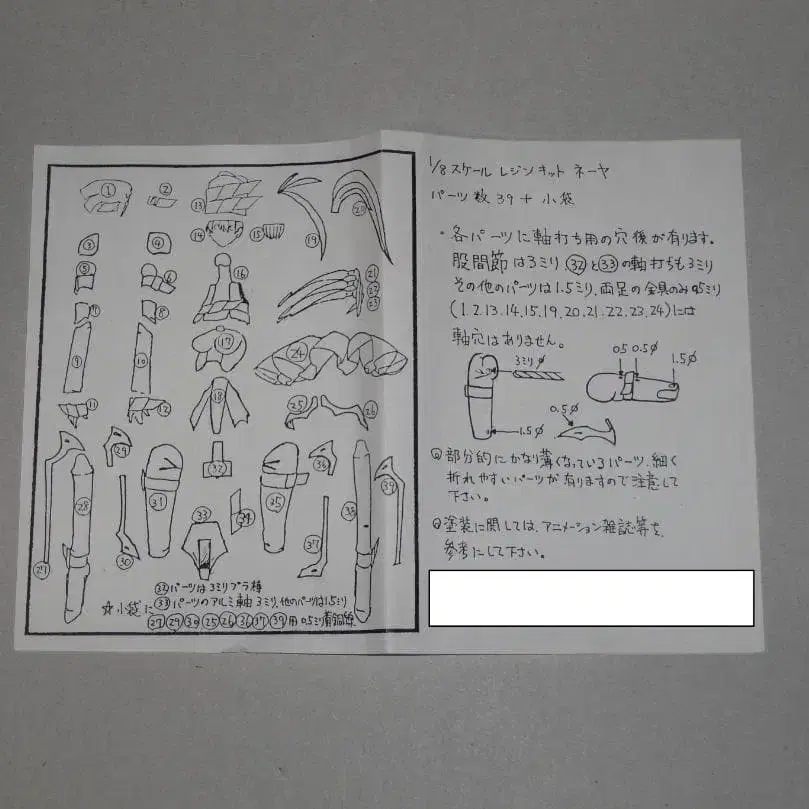 ① ② ⑬ ⑲ ⑳
③ ④ ⑭ ⑮
⑤ ⑥ ⑯ 21
22
23
⑦ ⑧
⑨ ⑩ ⑰ 24
⑪ ⑫ ⑱ 25 26
27 28 29 30 31 32 33 34 35 36 37 38 39
32 パーツは3ミリプラ棒
☆小袋に 33 パーツのアルミ軸 3ミリ、他のパーツは1.5ミリ
27 29 30 25 26 36 37 39 用 0.5ミリ真鍮線
1/8スケール レジンキット ネーヤ
パーツ数 39 + 小袋
・各パーツに軸打ち用の穴後が有ります。
股間節は3ミリ 32 と 33 の軸打ちも3ミリ
その他のパーツは1.5ミリ、両足の金具のみ0.5ミリ
(1.2.13.14.15.19.20.21.22.23.24)には
軸穴はありません。
3ミリφ
0.5 0.5φ
1.5φ
1.5φ
0.5φ
部分的にかなり薄くなっているパーツ、細く
折れやすいパーツが有りますので注意して
下さい。
塗装に関しては、アニメーション雑誌等を、
参考にして下さい。